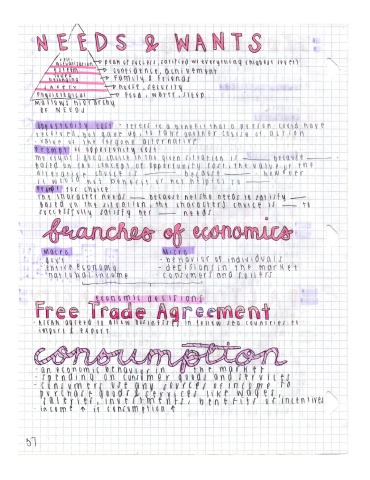 NEEDS & WANTS
self
actualization → peak of success, satisfied w/ everything (highest level)
esteem → confidence, achievement
love/belonging → family & friends
safety → house, security
physiological → food, water, sleep
maslows hierarchy
of needs
opportunity cost - refers to a benefit that a person could have
received, but gave up, to take another course of action
- value of the forgone alternative
prompt of opportunity cost
my right / good choice in the given situation is ___ because ___
based on the concept of opportunity cost, the value of the
alternative choice is ___ because ___. however
it would not benefit or not helpful in ___
prompt for choice
the character needs ___ because he/she needs to satisfy ___
based on the situation, the characters choice is ___ to
successfully satisfy her ___ needs.
branches of economics
macro micro
- gov't - behavior of individuals
- entire economy - decisions in the market
- national income - consumers and sellers
economic decisions
Free Trade Agreement
- asean agreed to allow businesses in fellow sea countries to
import & export
consumption
- an economic behavior in the market
- spending on consumer goods and services
- consumers use any sources of income to
purchase goods & services like wages,
salaries, investments, benefits or incentives
income ↑ is consumption ↑
37